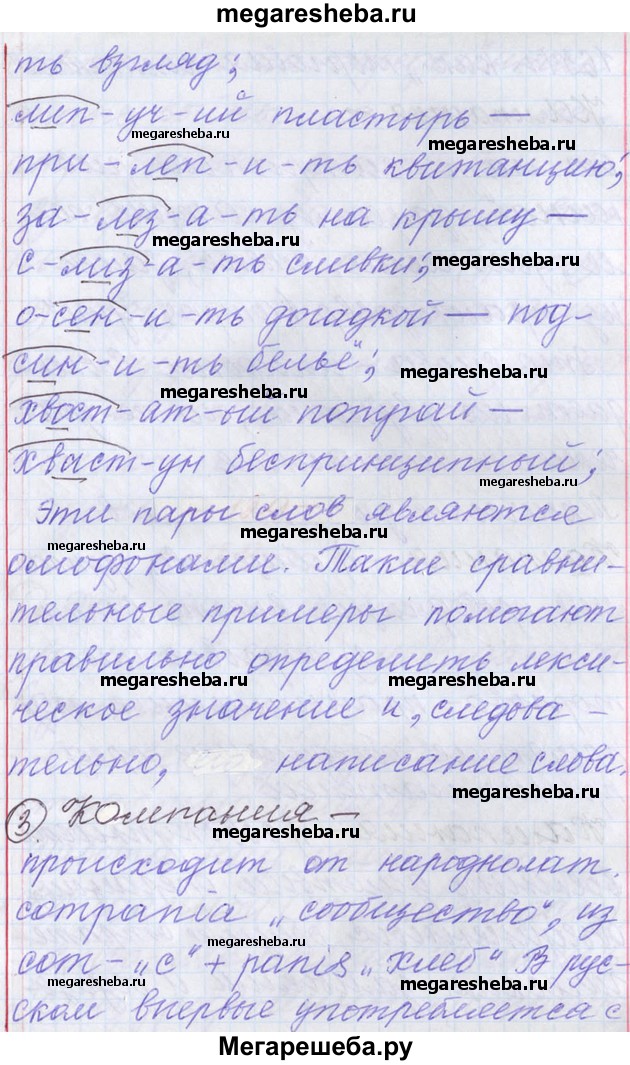 megaresheba.ru
ть взгляд;
леп-уч-ий пластырь —
megaresheba.ru megaresheba.ru
при-леп-и-ть квитанцию;
за-лез-а-ть на крышу —
megaresheba.ru
с-лиз-а-ть сливки;
megaresheba.ru
о-сен-и-ть догадкой — под-
син-и-ть бельё;
megaresheba.ru
megaresheba.ru
хвост-ат-ый попугай —
хваст-ун беспринципный;
megaresheba.ru
Эти пары слов являются
megaresheba.ru megaresheba.ru
омофонами. Такие сравни-
тельные примеры помогают
правильно определить лекси-
megaresheba.ru
ческое значение и, следова-
тельно, написание слова.
3. Компания —
megaresheba.ru
происходит от народнолат.
compania „сообщество“, из
megaresheba.ru
com- „с“ + panis „хлеб“ В рус-
megaresheba.ru
ском впервые употребляется с
Мегарешеба.ру